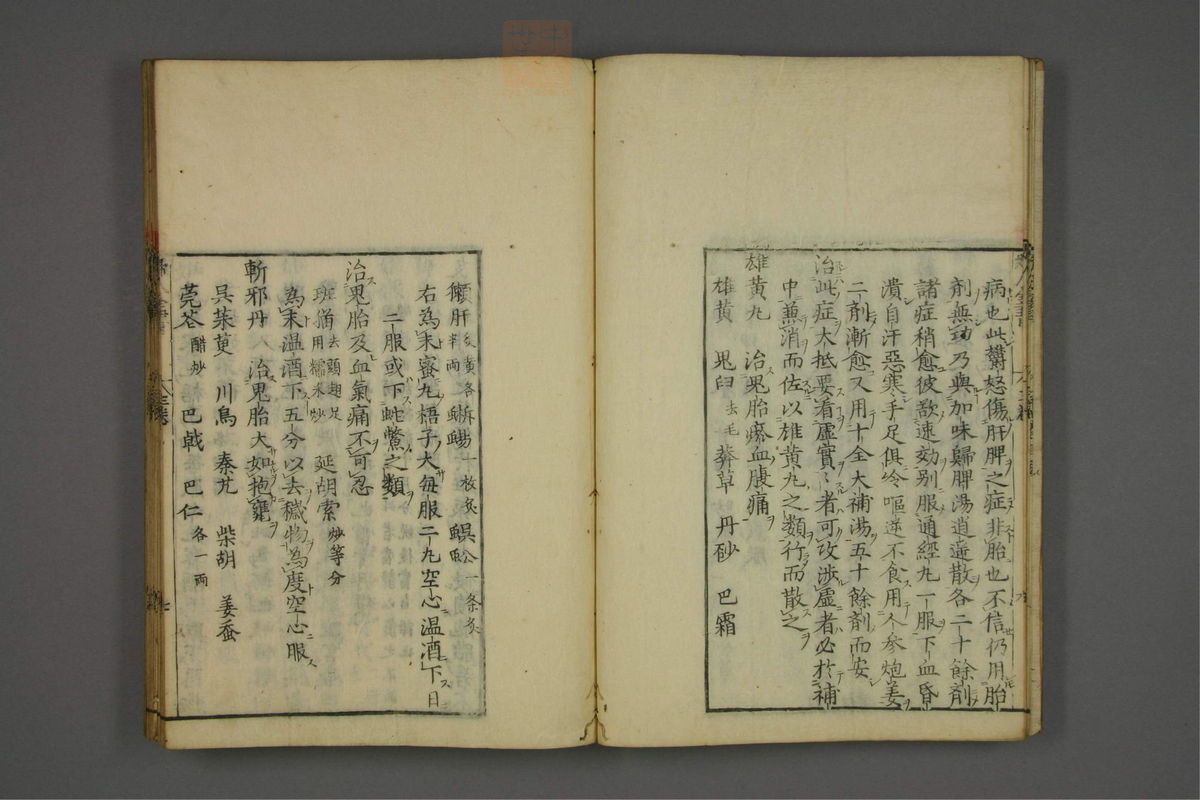 病也此欝怒傷肝脾之症非胎也不信仍用胎
剤無功乃與加味歸脾湯逍遥散各二十餘剤
諸症稍愈彼欲速効别服通經丸一服下血昏
潰自汗惡寒手足俱冷嘔逆不食用人参炮姜
二剤漸愈又用十全大補湯五十餘剤而安
治此症大抵要看虚實〻者可攻渉虚者必於補
中兼消而佐以雄黄丸之類行而散之
雄黄丸 治鬼胎瘀血腹痛
雄黄 鬼臼去毛 莽草 丹砂 巴霜
獺肝炙黄各半両 蜥蜴一枚炙 蜈蚣一条炙
右為末蜜丸梧子大毎服二丸空心温酒下日
二服或下蛇鱉之類
治鬼胎及血氣痛不可忍
班猫去頭翅足用糯米炒 延胡索炒等分
為末温酒下五分以去穢物為度空心服
斬邪丹 治鬼胎大如抱甕
呉茱萸 川烏 秦艽 柴胡 姜蚕
芫花醋炒 巴戟 巴仁各一両